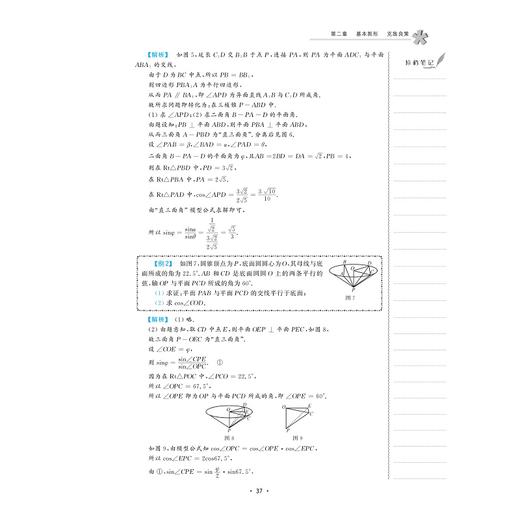 第二章 基本图形 克敌良策
拉档笔记
【解析】 如图5,延长C₁D交B₁B于点P,连接PA,则PA为平面ADC₁与平面
ABA₁的交线。
由于D为BC中点,所以PB=BB₁,
则四边形PBA₁A为平行四边形。
从而PA∥BA₁,即∠APD为异面直线A₁B与C₁D所成角。
故所求问题即转化为:在三棱锥P-ABD中.
(1) 求∠APD;(2) 求二面角B-PA-D的平面角.
由题设知:PB⊥平面ABD,则平面PBA⊥平面ABD。
从而三面角A-PBD为“直三面角”,分离后见图6.
设∠PAB=β,∠BAD=α,∠PAD=θ,
二面角B-PA-D的平面角为φ,则AB=2BD=DA=√2,PB=4,
则在Rt△PBD中,PD=3√2,
在Rt△PBA中,PA=2√5.
在Rt△PAD中,cos∠APD=3√2/2√5=3√10/10.
由“直三面角”模型公式求解即可.
所以sinφ=sinα/sinθ=(1/√2)/(3√2/2√5)=√5/3.
【例2】 如图7,圆锥顶点为P,底面圆圆心为O,其母线与底
面所成的角为22.5°,AB和CD是底面圆O上的两条平行的
弦,轴OP与平面PCD所成的角为60°.
(1) 求证:平面PAB与平面PCD的交线平行于底面;
(2) 求cos∠COD.
图7
【解析】 (1) 略.
(2) 由题意知,取CD中点E,则平面OEP⊥平面PEC,如图8,
故三面角P-OEC为“直三面角”.
设∠COE=φ,
则sinφ=sin∠CPE/sin∠OPC. ①
因为在Rt△POC中,∠PCO=22.5°,
所以∠OPC=67.5°,
所以∠OPE即为OP与平面PCD所成的角,即∠OPE=60°.
图8 图9
如图9,由模型公式知cos∠OPC=cos∠OPE·cos∠EPC,
所以cos∠EPC=2cos67.5°,
由①,sin∠CPE=sin φ/2·sin67.5°,
· 37 ·